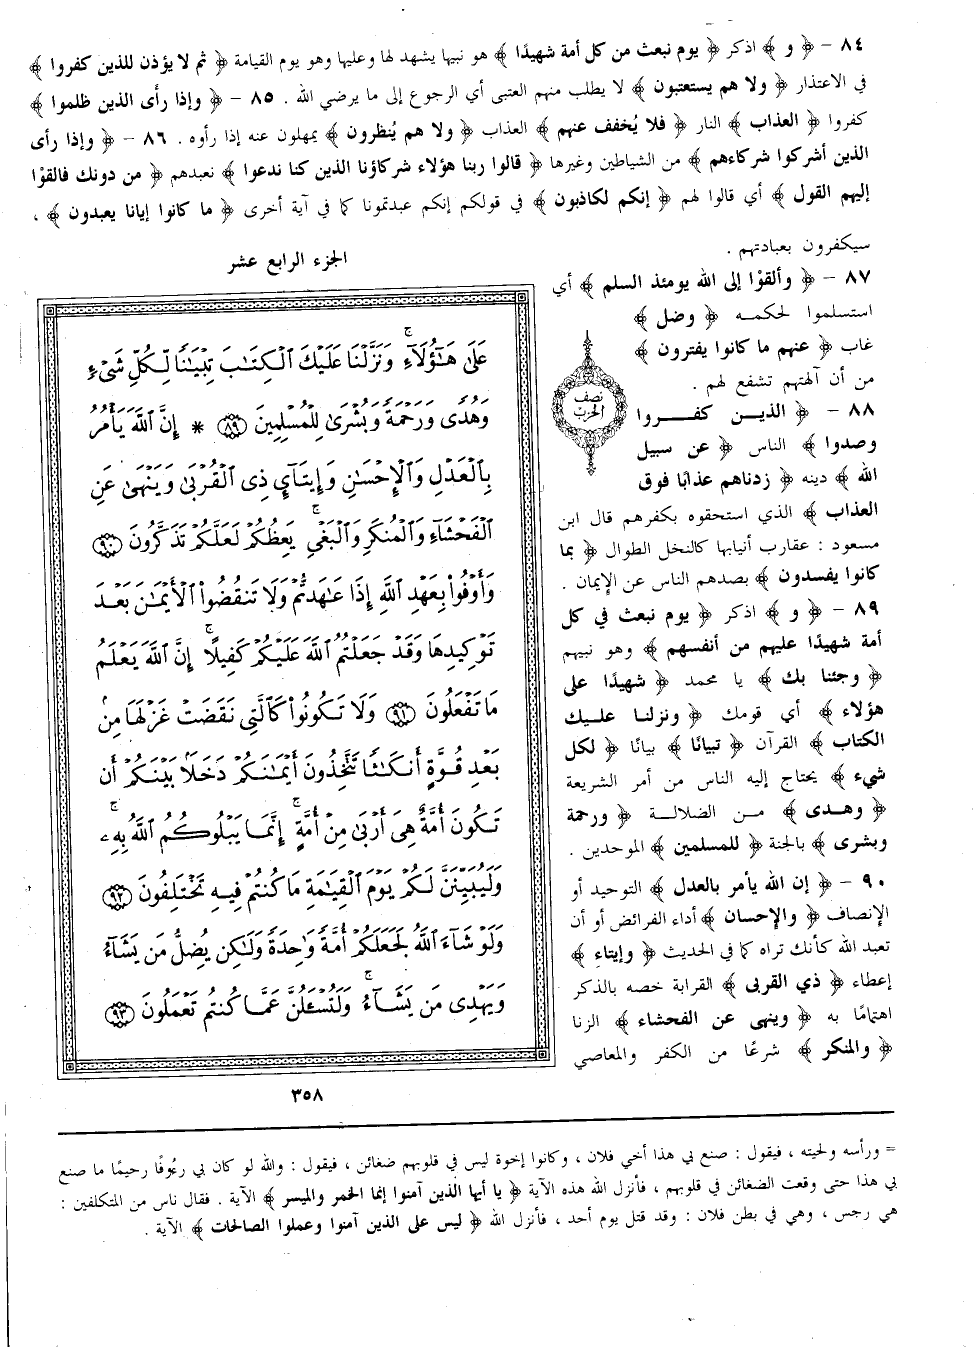 ٨٤ – ﴿ و ﴾ اذكر ﴿ يوم نبعث من كل أمة شهيدًا ﴾ هو نبيها يشهد لها وعليها وهو يوم القيامة ﴿ ثم لا يؤذن للذين كفروا ﴾
في الاعتذار ﴿ ولا هم يستعتبون ﴾ لا يطلب منهم العتبى أي الرجوع إلى ما يرضي الله . ٨٥ – ﴿ وإذا رأى الذين ظلموا ﴾
كفروا ﴿ العذاب ﴾ النار ﴿ فلا يُخفف عنهم ﴾ العذاب ﴿ ولا هم يُنظرون ﴾ يمهلون عنه إذا رأوه . ٨٦ – ﴿ وإذا رأى
الذين أشركوا شركاءهم ﴾ من الشياطين وغيرها ﴿ قالوا ربنا هؤلاء شركاؤنا الذين كنا ندعوا ﴾ نعبدهم ﴿ من دونك فالقوْا
إليهم القول ﴾ أي قالوا لهم ﴿ إنكم لكاذبون ﴾ في قولكم إنكم عبدتمونا كما في آية أخرى ﴿ ما كانوا إيانا يعبدون ﴾ ،
سيكفرون بعبادتهم .
٨٧ – ﴿ وألقوْا إلى الله يومئذ السلم ﴾ أي
استسلموا لحكمه ﴿ وضل ﴾
غاب ﴿ عنهم ما كانوا يفترون ﴾
من أن آلهتهم تشفع لهم .
٨٨ – ﴿ الذين كفروا
وصدوا ﴾ الناس ﴿ عن سبيل
الله ﴾ دينه ﴿ زدناهم عذابًا فوق
العذاب ﴾ الذي استحقوه بكفرهم قال ابن
مسعود : عقارب أنيابها كالنخل الطوال ﴿ بما
كانوا يفسدون ﴾ بصدهم الناس عن الإيمان .
٨٩ – ﴿ و ﴾ اذكر ﴿ يوم نبعث في كل
أمة شهيدًا عليهم من أنفسهم ﴾ وهو نبيهم
﴿ وجئنا بك ﴾ يا محمد ﴿ شهيدًا على
هؤلاء ﴾ أي قومك ﴿ ونزلنا عليك
الكتاب ﴾ القرآن ﴿ تبيانًا ﴾ بيانًا ﴿ لكل
شيء ﴾ يحتاج إليه الناس من أمر الشريعة
﴿ وهدى ﴾ من الضلالة ﴿ ورحمة
وبشرى ﴾ بالجنة ﴿ للمسلمين ﴾ الموحدين .
٩٠ – ﴿ إن الله يأمر بالعدل ﴾ التوحيد أو
الإنصاف ﴿ والإحسان ﴾ أداء الفرائض أو أن
تعبد الله كأنك تراه كما في الحديث ﴿ وإيتاءِ ﴾
إعطاء ﴿ ذي القربى ﴾ القرابة خصه بالذكر
اهتمامًا به ﴿ وينهى عن الفحشاء ﴾ الزنا
﴿ والمنكر ﴾ شرعًا من الكفر والمعاصي
نصف
الحزب
الجزء الرابع عشر
عَلَىٰ هَـٰٓؤُلَآءِ ۚ وَنَزَّلْنَا عَلَيْكَ ٱلْكِتَـٰبَ تِبْيَـٰنًا لِّكُلِّ شَىْءٍ
وَهُدًى وَرَحْمَةً وَبُشْرَىٰ لِلْمُسْلِمِينَ ﴿٨٩﴾ * إِنَّ ٱللَّهَ يَأْمُرُ
بِٱلْعَدْلِ وَٱلْإِحْسَـٰنِ وَإِيتَآئِ ذِى ٱلْقُرْبَىٰ وَيَنْهَىٰ عَنِ
ٱلْفَحْشَآءِ وَٱلْمُنكَرِ وَٱلْبَغْىِ ۚ يَعِظُكُمْ لَعَلَّكُمْ تَذَكَّرُونَ ﴿٩٠﴾
وَأَوْفُوا۟ بِعَهْدِ ٱللَّهِ إِذَا عَـٰهَدتُّمْ وَلَا تَنقُضُوا۟ ٱلْأَيْمَـٰنَ بَعْدَ
تَوْكِيدِهَا وَقَدْ جَعَلْتُمُ ٱللَّهَ عَلَيْكُمْ كَفِيلًا ۚ إِنَّ ٱللَّهَ يَعْلَمُ
مَا تَفْعَلُونَ ﴿٩١﴾ وَلَا تَكُونُوا۟ كَٱلَّتِى نَقَضَتْ غَزْلَهَا مِنۢ
بَعْدِ قُوَّةٍ أَنكَـٰثًا تَتَّخِذُونَ أَيْمَـٰنَكُمْ دَخَلًۢا بَيْنَكُمْ أَن
تَكُونَ أُمَّةٌ هِىَ أَرْبَىٰ مِنْ أُمَّةٍ ۚ إِنَّمَا يَبْلُوكُمُ ٱللَّهُ بِهِۦ ۚ
وَلَيُبَيِّنَنَّ لَكُمْ يَوْمَ ٱلْقِيَـٰمَةِ مَا كُنتُمْ فِيهِ تَخْتَلِفُونَ ﴿٩٢﴾
وَلَوْ شَآءَ ٱللَّهُ لَجَعَلَكُمْ أُمَّةً وَٰحِدَةً وَلَـٰكِن يُضِلُّ مَن يَشَآءُ
وَيَهْدِى مَن يَشَآءُ ۚ وَلَتُسْـَٔلُنَّ عَمَّا كُنتُمْ تَعْمَلُونَ ﴿٩٣﴾
٣٥٨
= ورأسه ولحيته ، فيقول : صنع بي هذا أخي فلان ، وكانوا إخوة ليس في قلوبهم ضغائن ، فيقول : والله لو كان بي رءُوفًا رحيمًا ما صنع
بي هذا حتى وقعت الضغائن في قلوبهم ، فأنزل الله هذه الآية ﴿ يا أيها الذين آمنوا إنما الخمر والميسر ﴾ الآية . فقال ناس من المتكلفين :
هي رجس ، وهي في بطن فلان : وقد قتل يوم أحد ، فأنزل الله ﴿ ليس على الذين آمنوا وعملوا الصالحات ﴾ الآية .